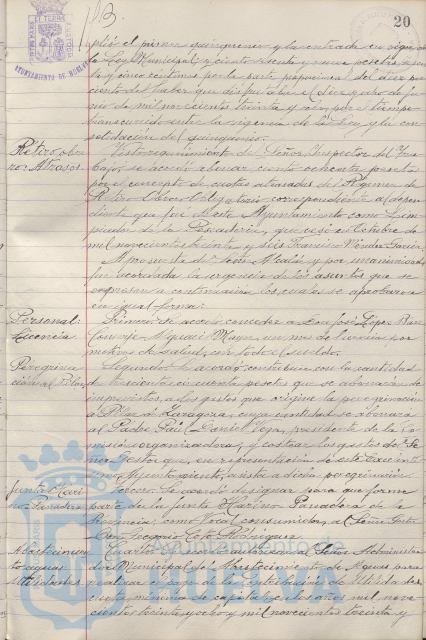 113.
20
AYUNTAMIENTO DE HUELVA
plió el primer quinquenio y la entrada en vigor de
la Ley Municipal, y ciento sesenta y nueve pesetas
y cinco céntimos, por la parte proporcional del diez por
ciento del haber que disfrutaba el diez y ocho de ju-
nio de mil novecientos treinta y seis, por el tiempo
transcurrido entre la vigencia de la Ley y la con-
solidación del quinquenio.
Retiro obre-
ro: Atrasos
Visto requerimiento del Señor Inspector del Tra-
bajo, se acordó abonar ciento ochenta pesetas
por el concepto de cuotas atrasadas del Régimen de
Retiro Obrero Obligatorio correspondiente al depen-
diente que fué de este Ayuntamiento como Lim-
piador de la Pescadería, que cesó en Octubre de
mil novecientos treinta y seis Francisco Méndez García.
A propuesta del Señor Alcalde y por unanimidad
fué acordada la urgencia de los asuntos que se
expresan a continuación los cuales se aprobaron
en igual forma:
Personal:
Licencia.
Primero: Se acordó conceder a Don José López
Conserje-Alguacil Mayor, un mes de licencia por
motivos de salud, con todo el sueldo.
Peregrina
ción al Pilar
Segundo: Se acordó contribuir con la cantidad
de trescientas cincuenta pesetas que se abonarán de
imprevistos, a los gastos que origine la peregrinación
al Pilar de Zaragoza, cuya cantidad se abonará
al Padre Paúl Daniel Vega, presidente de la Co-
misión organizadora, y costear los gastos del Se-
ñor Gestor que, en representación de este Excelentí-
simo Ayuntamiento, asista a dicha peregrinación.
Junta Hari-
no-Panadera
Tercero: Se acordó designar para que forme
parte de la Junta Harino Panadera de la
Provincia, como Vocal consumidor, al Señor Gestor
Don Socorro Coto Rodríguez.
Abastecimiento
de aguas:
Utilidades
Cuarto: Se acordó autorizar al Señor Administra-
dor Municipal de Abastecimiento de Aguas para
realizar el pago de la Contribución de Utilidades
cuota mínima de capital, de los años mil nove-
cientos treinta y ocho y mil novecientos treinta y
Ayuntamiento de
HUELVA